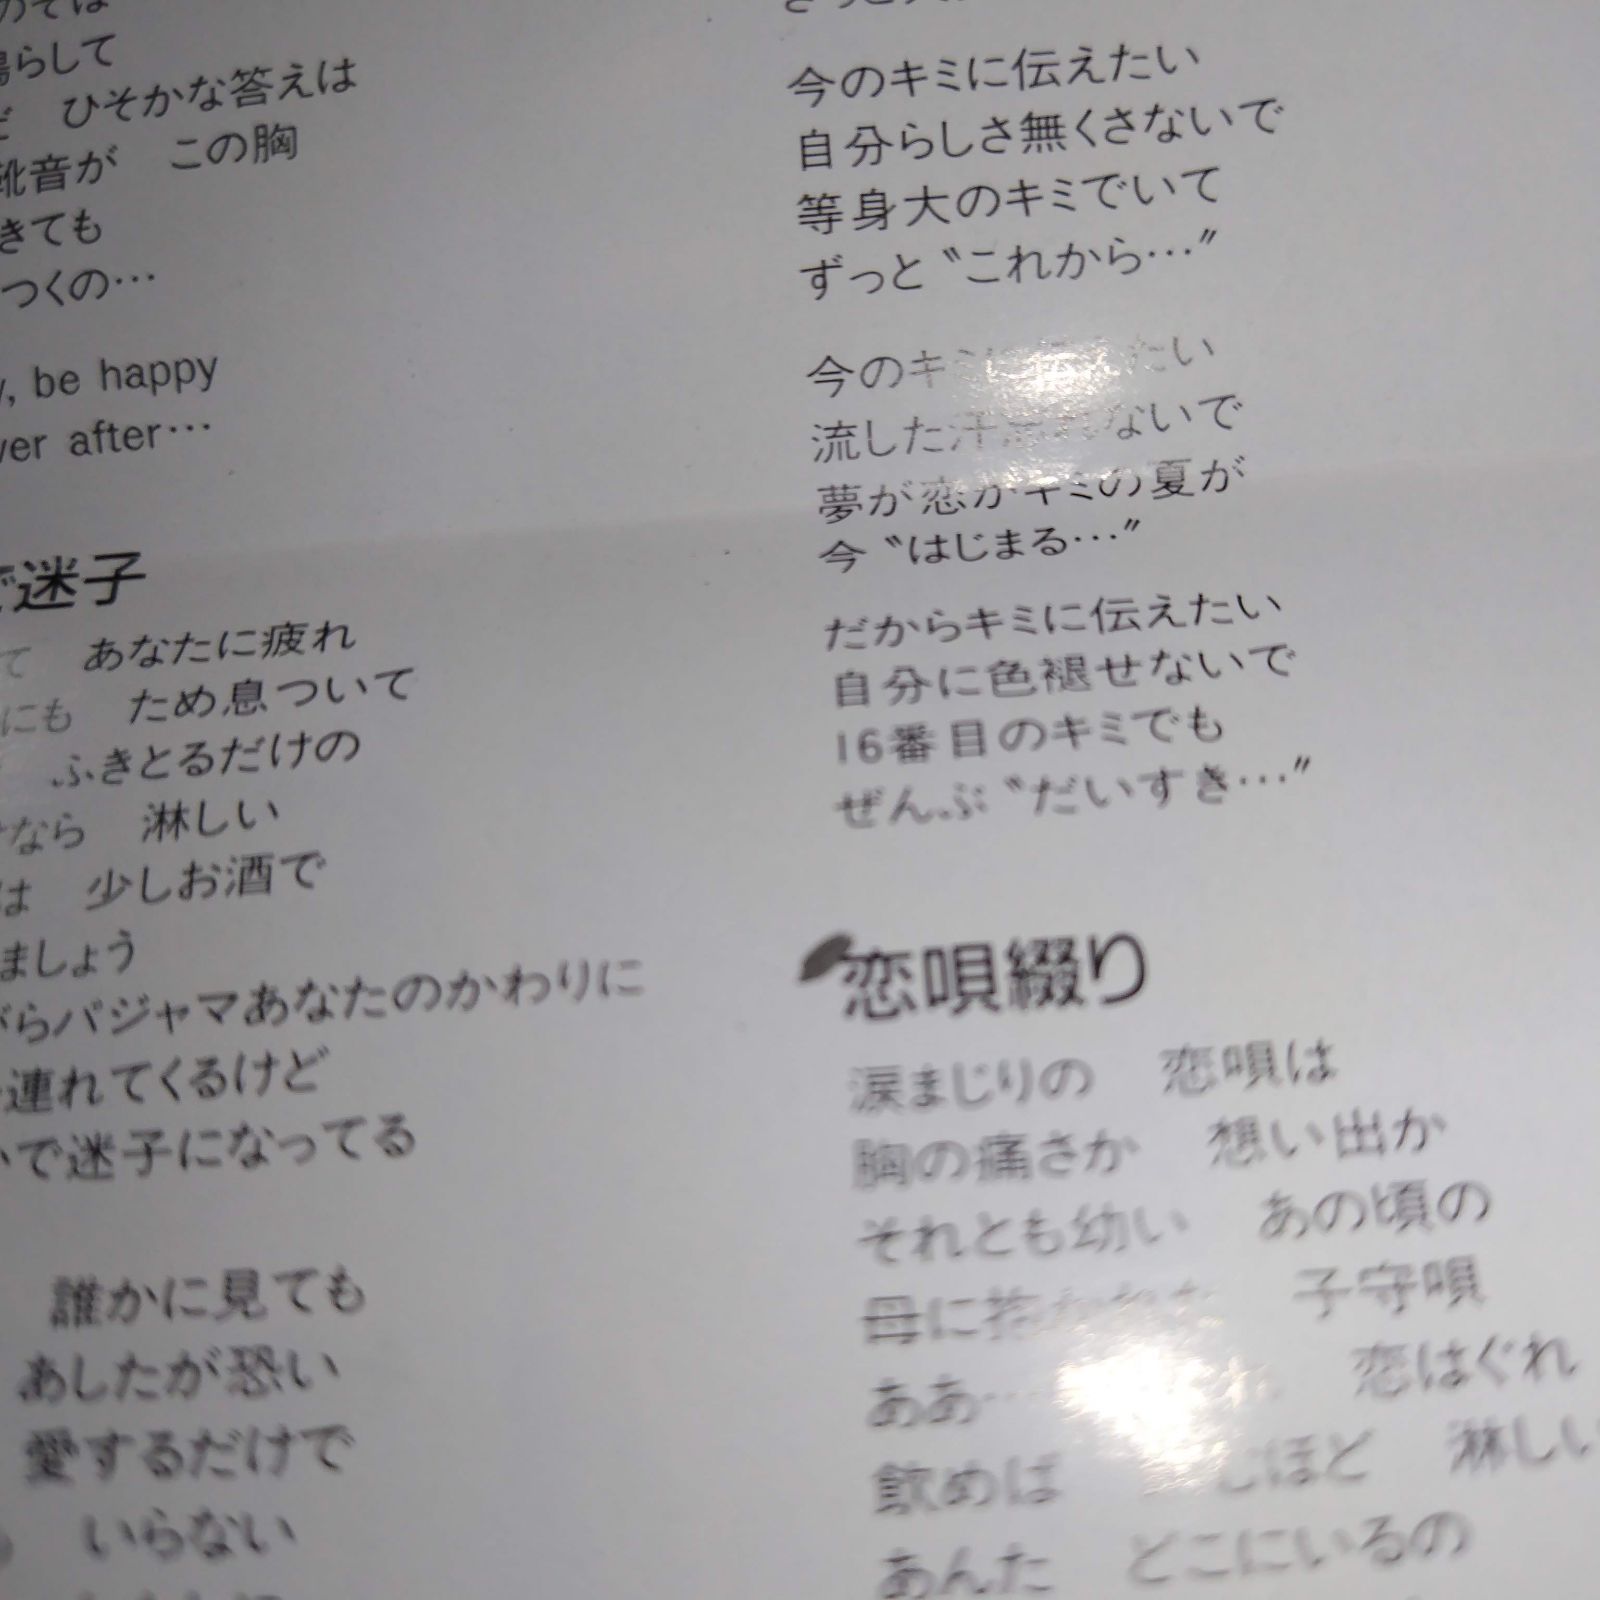 らして
ひそかな答えは
靴音が　この胸
きても
つくの…
, be happy
ver after…
で迷子
て　あなたに疲れ
にも　ため息ついて
ふきとるだけの
なら　淋しい
は　少しお酒で
ましょう
がらパジャマあなたのかわりに
連れてくるけど
で迷子になってる
誰かに見ても
あしたが恐い
愛するだけで
いらない
今のキミに伝えたい
自分らしさ無くさないで
等身大のキミでいて
ずっと〝これから…〞
今のキ　たい
流した汗　ないで
夢が恋がキミの夏が
今〝はじまる…〞
だからキミに伝えたい
自分に色褪せないで
16番目のキミでも
ぜんぶ〝だいすき…〞
恋唄綴り
涙まじりの　恋唄は
胸の痛さか　想い出か
それとも幼い　あの頃の
母に抱　子守唄
ああ…　恋はぐれ
飲めば　ほど　淋しい
あんた　どこにいるの